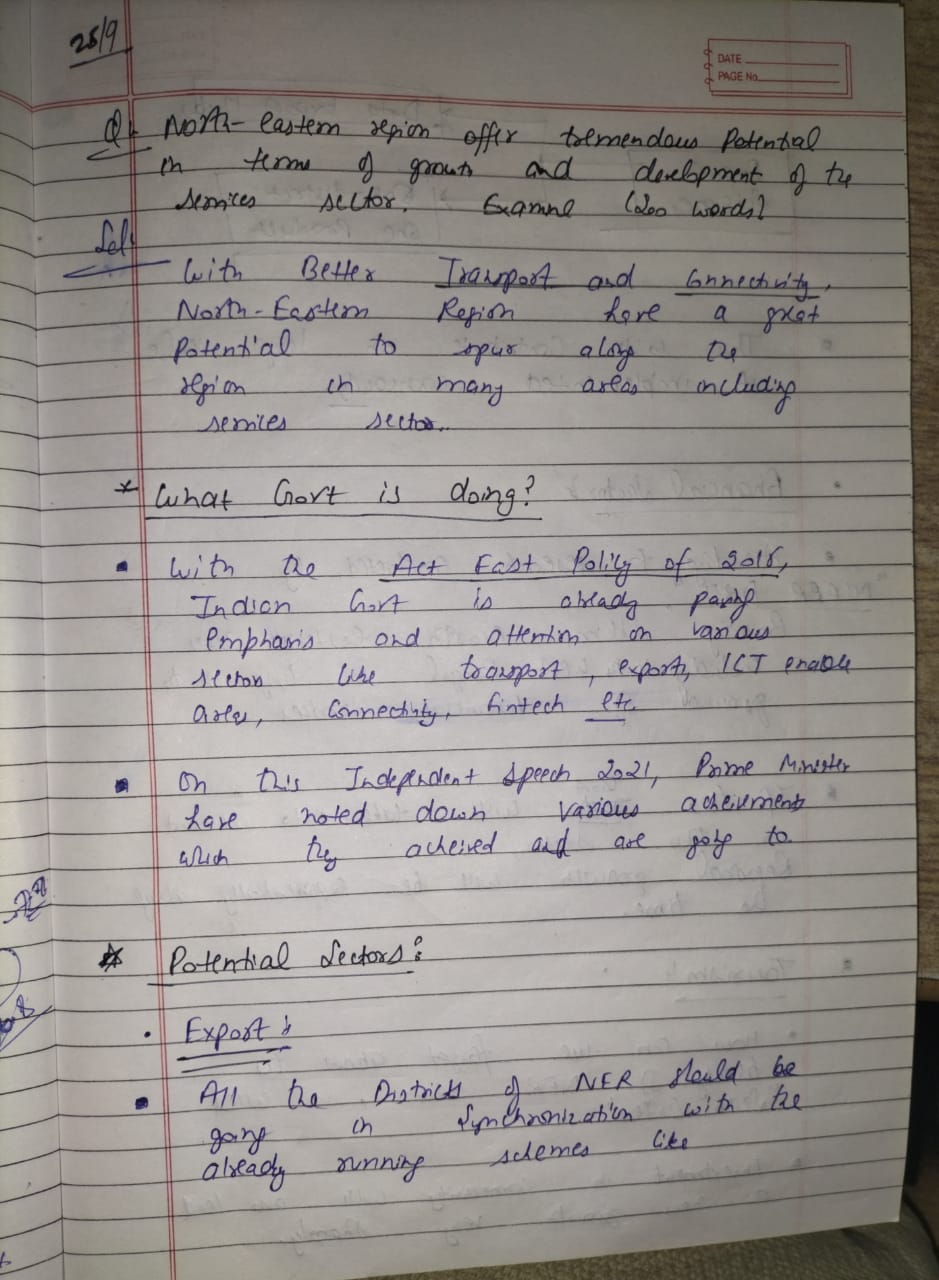 25/9
DATE
PAGE No.
Q. North-eastern region offer tremendous Potential
in terms of growth and development of the
services sector. Examine (200 words)
Sol:
With Better Transport and Connectivity,
North-Eastern Region have a great
Potential to spur along the
region in many areas including
services sector.
* What Govt is doing?
• With the Act East Policy of 2018,
Indian Govt is already paying
emphasis and attention on various
sectors like transport, exports, ICT enable
areas, Connectivity, fintech etc.
• On this Independent Speech 2021, Prime Minister
have noted down various acheivements
which they acheived and are going to.
* Potential Sectors:
• Export:
• All the Districts of NER should be
going in Synchronization with the
already running schemes like